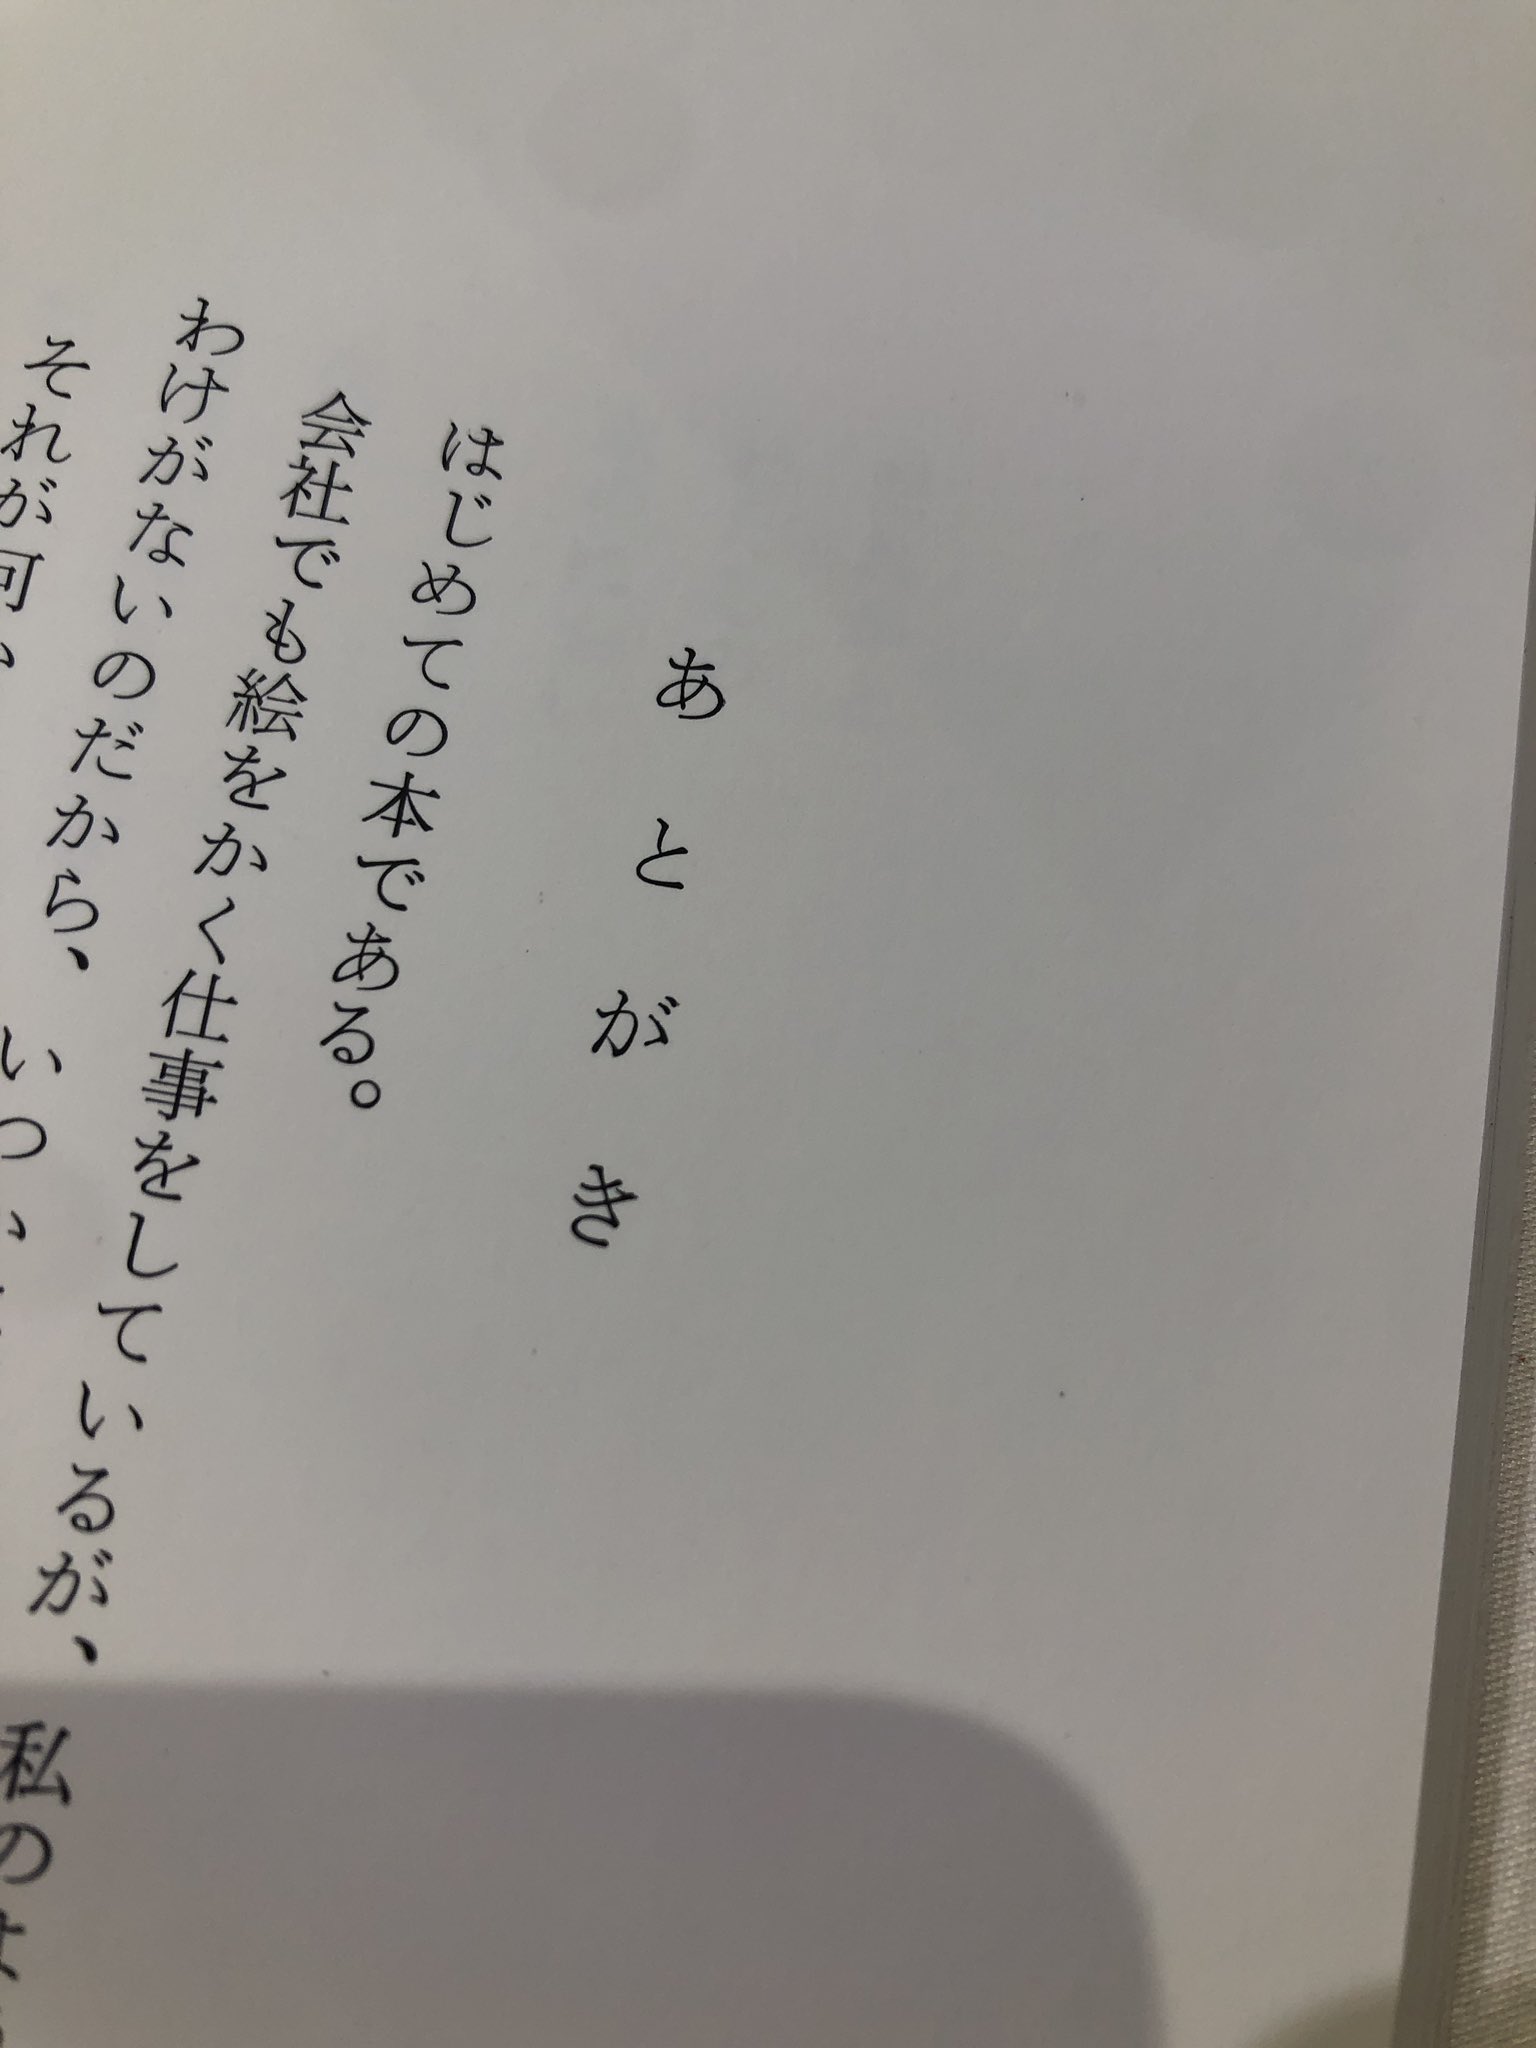 あとがき
はじめての本である。
会社でも絵をかく仕事をしているが、私の
わけがないのだから、いつか
それが何か